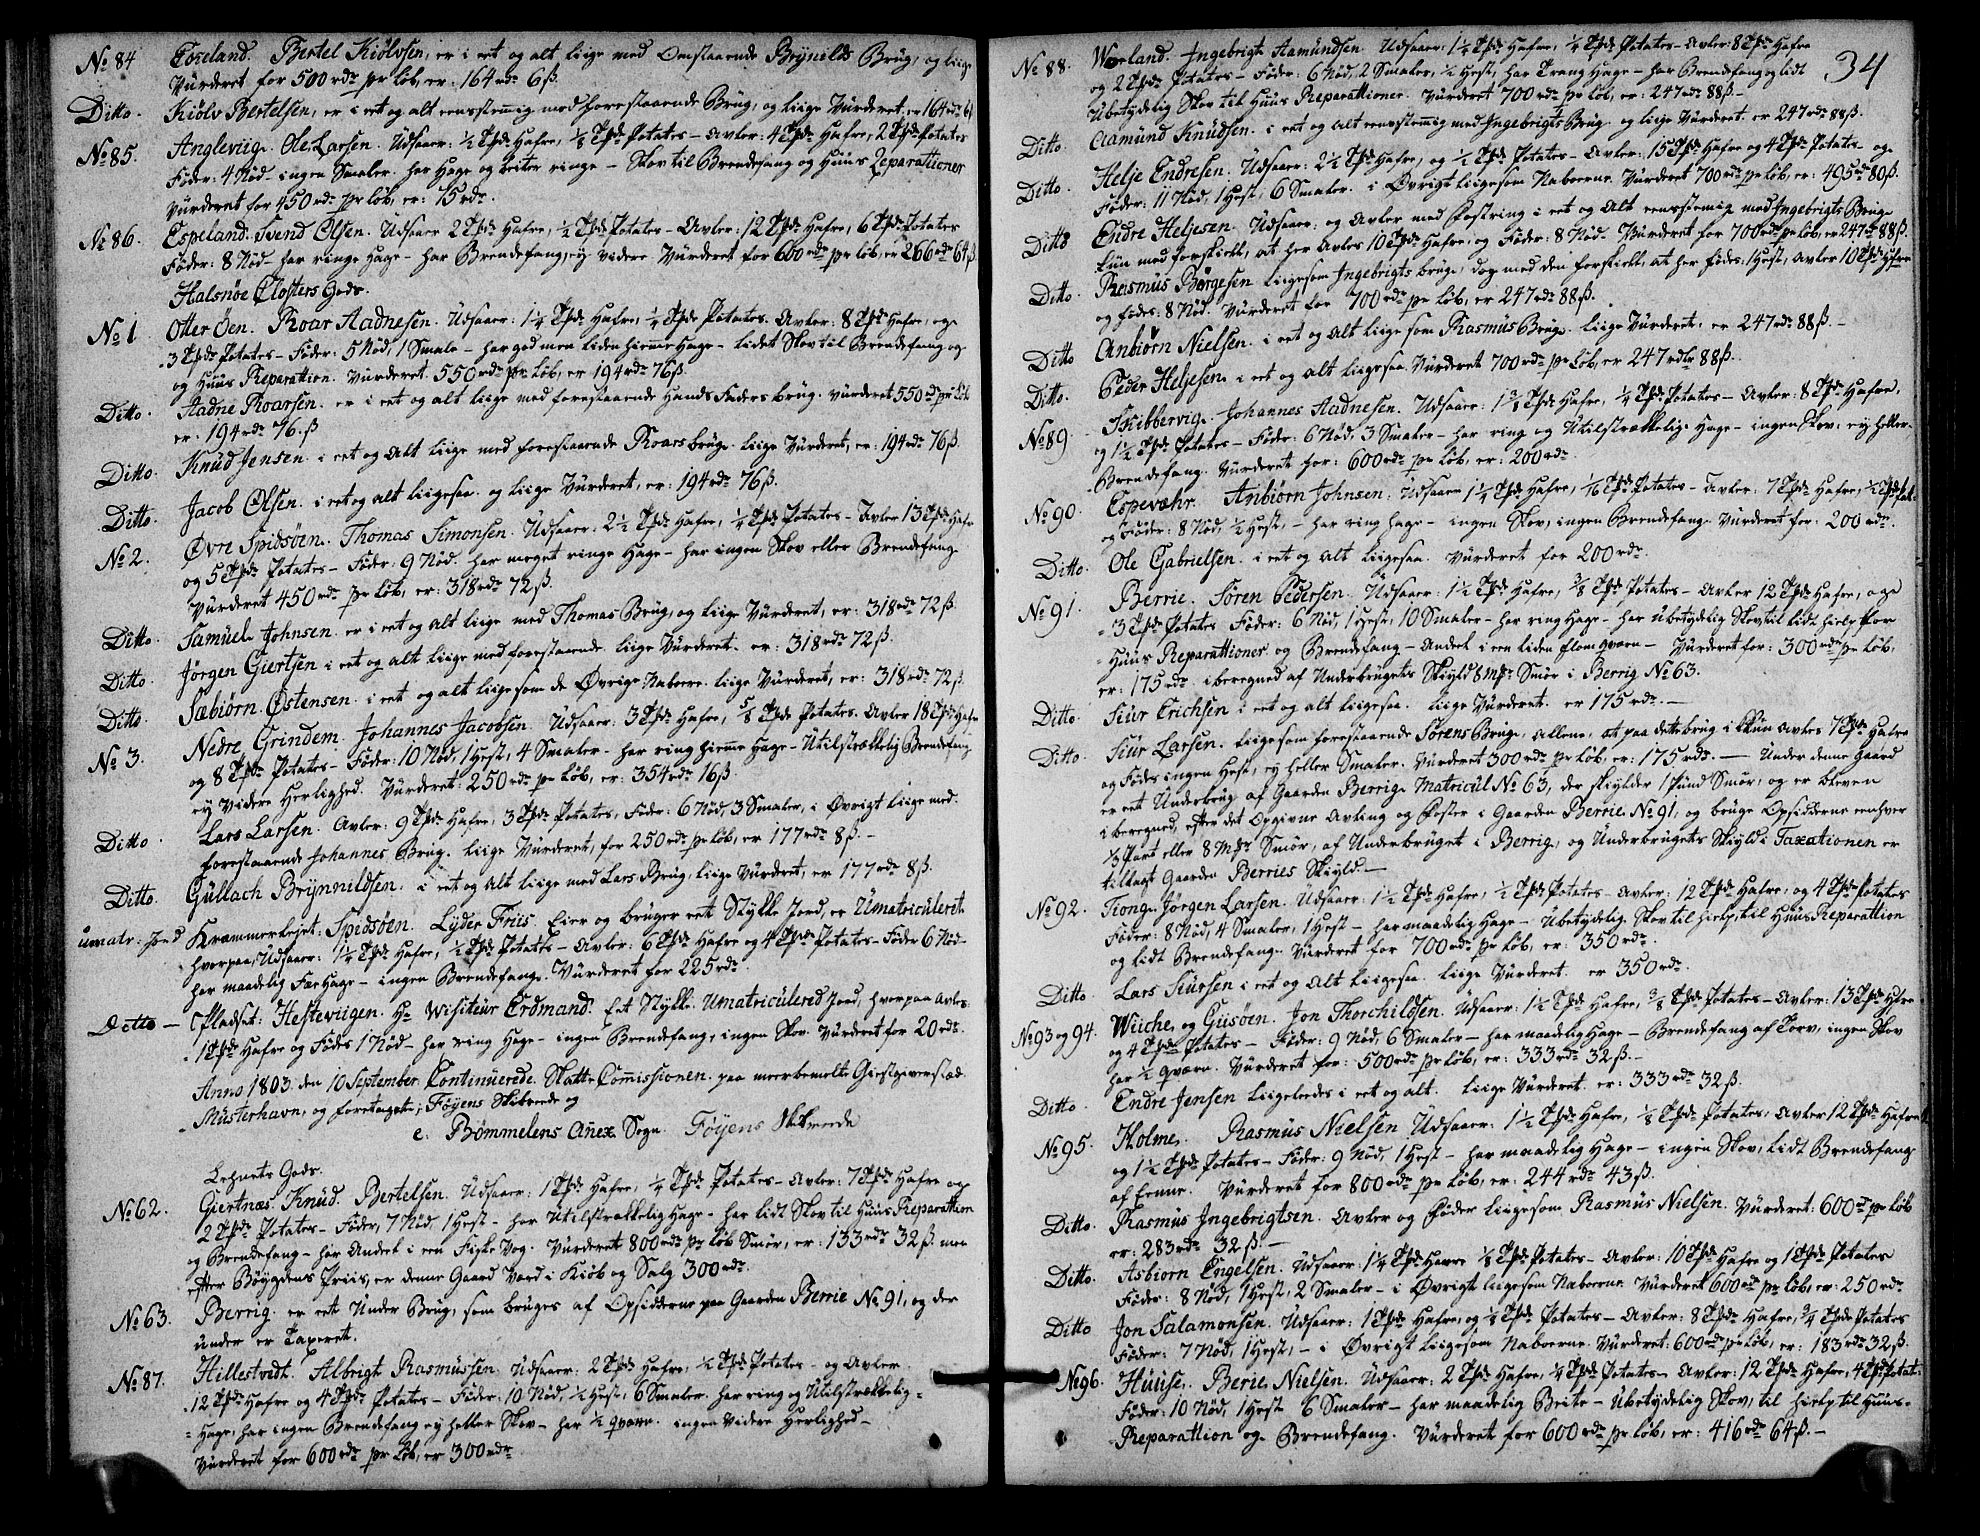 No 84 Eseland. Bertel Kiölvsen, er i eet og alt liige med Omstaaende Brÿnilds Brüg, og liige
Vürderet for 500 rdr pr Løb, er: 164 rdr 6 ß.
Ditto. Kiölv Bertelsen, er i eet og alt eenstemig med forestaaende Brüg, og liige Vürderet, er 164 rdr 6 ß
No 85. Angleviig. Ole Larsen. Udsaaer: ½ Tde Hafre, ⅛ Tde Potates – Avler: 4 Tde Hafre, 2 Tde Potates
Föder: 4 Nöd – ingen Smaler. har Hage og beiter ringe – Skov til Brendefang og Huus Reparationer
Vürderet for 450 rdr pr Løb, er: 75 rdr.
No 86. Espeland. Svend Olsen. Udsaaer 2 Tde Hafre, ½ Tde Potates – Avler: 12 Tde Hafre, 6 Tde Potates
Föder: 8 Nöd. har ringe Hage – har Brendefang, ey videre Vürderet for 600 rdr pr Løb, er 266 rdr 64 ß.
Halsnöe Closters Gods.
No 1 Otter Öen. Roar Aadnesen. Udsaaer: 1¼ Tde Hafre, ¼ Tde Potates. Avler: 8 Tde Hafre, og
3 Tde Potates – Föder: 5 Nöd, 1 Smale – har god men liden hieme Hage – lidet Skov til Brendefang og
og Huus Reparattion. Vürderet 550 rdr pr Løb, er 194 rdr 76 ß.
Ditto. Aadne Roarsen. er i eet og alt liige med forestaaende Hands Faders brüg. vürderet 550 rdr pr Løb
er: 194 rdr 76. ß
Ditto. Knüd Jensen. i eet og alt liige med forestaaende Roars brüg. liige Vürderet, er: 194 rdr 76 ß.
Ditto. Jacob Olsen. i eet og alt liigesaa. og liige Vürderet, er: 194 rdr 76 ß.
No 2. Övre Spidsöen. Thomas Simonsen. Udsaaer: 2½ Tde Hafre, ¼ Tde Potates – Avler 13 Tde Hafre
og 5 Tde Potates – Föder: 9 Nöd. har meget ringe Hage – har ingen Skov eller Brendefang.
Vürderet 450 rdr pr Løb, er: 318 rdr 72 ß.
Ditto. Samüel Johnsen. er i eet og alt liige med Thomas Brüg, og liige Vürderet, er: 318 rdr 72 ß.
Ditto. Jörgen Giertsen i eet og alt liige med forestaaende. liige Vürderet. er: 318 rdr 72 ß.
Ditto. Sæbiörn Östensen. i eet og alt liigesom de Övrige Naboer. liige Vürderet, er: 318 rdr 72 ß.
No 3. Nedre Grindem. Johannes Jacobsen. Udsaaer: 3 Tde Hafre, ⅝ Tde Potates. Avler 18 Tde Hafre
og 8 Tde Potates – Föder: 10 Nöd, 1 Hest, 4 Smaler – har ring hieme Hage – Utilstrækkelig Brendefang
ey Videre Herlighed. Vürderet 250 rdr pr Løb, er: 354 rdr 16 ß.
Ditto. Lars Larsen. Avler: 9 Tde Hafre, 3 Tde Potates, Föder: 6 Nöd, 3 Smaler, i Övrigt liige med.
forestaaende Johannes Brüg. liige Vürderet, for 250 rdr pr Løb, er 177 rdr 8 ß. –
Ditto. Güllach Brÿnnildsen. i eet og alt liige med Lars Brüg, liige Vürderet, er 177 rdr 8 ß.
umatr: Jord Kræmmerlejet: Spidsöen. Lÿder Friis. Eier og brüger eet Stykke Jord, er Umatriculerit
hvorpaa Udsaaer: 1¼ Tde Hafre, ½ Tde Potatts – Avler: 6 Tde Hafre og 4 Tde Potates – Föder 6 Nöd
har maadelig Fæ Hage – ingen Brendefang. Vürderet for 225 rdr.
Ditto – Pladset: Hesteviigen. Hr Wisiteur Erdmand. Eet Stykke Umatriculered Jord, hvorpaa Avles
1 Tde Hafre og Födes 1 Nöd – har ring Hage – ingen Brendefang, ingen Skov. Vürderet for 20 rdr.
Anno 1803. den 10 September Continuerede Skatte Comissionen. paa meerbemelte Giestgiverstæd
Müsterhavn, og foretaget; Föyens Skibrede og
e. Bömmelens Anex Sogn. Föyens Skibrede
Lehnets Gods.
No 62. Giertnæs. Knüd. Bertelsen. Udsaaer: 1 Tde Hafre, ¼ Tde Potates – Avler: 7 Tde Hafre og
2 Tde Potates – Föder, 7 Nöd, 1 Hest – har Utilstrækkelig Hage – har lidt Skov til Huus Reparattion
og Brendefang – har Andeel i een Fiske Vog. Vürderet 800 rdr pr Løb Smör, er: 133 rdr 32 ß. men
efter Böygdens Priis, er denne Gaard Værd i Kiöb og Salg 300 rdr.
No 63. Berrig. er eet Under Brüg, som brüges af Opsidderne paa Gaarden Berrie No 91, og der
under er Taxeret.
No 87. Hillestvedt. Albrigt Rasmüssen. Udsaaer: 2 Tde Hafre, ½ Tde Potates – og Avler
12 Tde Hafre og 4 Tde Potates – Föder: 10 Nöd, ½ Hest, 6 Smaler. har ring og Utilstrækkelig
Hage, har ingen Brendefang ey heller Skov – har ½ qværn. ingen Videre Herlighed –
Vürderet for 600 rdr pr Løb, er 300 rdr.
34
No 88. Worland. Ingebrigt Aamündsen. Udsaaer: 1¼ Tde Hafre, ¼ Tde Potates – Avler: 8 Tde Hafre
og 2 Tde Potates – Föder: 6 Nöd, 2 Smaler, ½ Hest, har Trang Hage – har Brendefang og lidt
Ubetÿdelig Skov til Huus Reparattioner. Vürderet 700 rdr pr Løb, er: 247 rdr 88 ß –
Ditto. Aamünd Knüdsen. i eet og alt eenstemig med Ingebrigts Brüg. og liige Vürderet. er 247 rdr 88 ß.
Ditto. Helje Endresen. Udsaaer: 2½ Tde Hafre, og ½ Tde Potates – Avler: 15 Tde Hafre og 4 Tde Potates – og
Föder: 11 Nöd, 1 Hest, 6 Smaler. i Övrigt liigesom Naboerne. Vürderet 700 rdr pr Løb, er: 495 rdr 80 ß.
Ditto Endre Heljesen. Udsaaer, og Avler med Fostring i eet og Alt eenstemig med Ingebrigts Brüg
kün med forskiell, at her Avles 10 Tde Hafre, og Föder: 8 Nöd. Vürderet for 700 rdr pr Løb, er 247 rdr 88 ß.
Ditto. Rasmüs Börgesen liigesom Ingebrigts brüg, dog med den forskiell, at her födes 1 Hest, Avler 10 Tde Hafre
og födes: 8 Nöd. Vürderet for 700 rdr pr Løb, er 247 rdr 88 ß.
Ditto Anbiörn Nielsen. i eet og Alt liige som Rasmüs Brüg. liige Vürderet. er 247 rdr 88 ß. –
Ditto. Peder Heljesen. i eet og alt liigesaa. Vürderet 700 rdr pr Løb, er 247 rdlr 88 ß.
No 89. Kilbbervig. Johannes Aadnesen. Udsaaer: 1⅜ Tde Hafre, ¼ Tde Potates – Avler: 8 Tde Hafre,
og 1½ Tde Potates – Föder: 6 Nöd, 3 Smaler – har ring og Utilstrækkelig Hage – ingen Skov, ey heller
Brendefang. Vürderet for: 600 rdr pr Løb, er: 200 rdr.
No 90. Espevæhr. Anbiörn Johnsen. Udsaaer 1¼ Tde Hafre, 1/16 Tde Potates – Avler: 7 Tde Hafre, ½ Tde Potat:
og Föder: 8 Nöd, ½ Hest, – har ring hage – ingen Skov, ingen Brendefang. Vürderet for: 200 rdr.
Ditto. Ole Gabrielsen. i eet og Alt liigesaa. Vürderet for 200 rdr.
No 91. Berrie. Sören Pedersen. Udsaaer: 1½ Tde Hafre, ⅜ Tde Potates – Avler 12 Tde Hafre, og
3 Tde Potates Föder: 6 Nöd, 1 Hest, 10 Smaler – har ring Hage – har Ubetÿdelig Skov til lidt hielp for
Huus Reparattioner og Brendefang – Andeel i een liden flomqværn – Vürderet for: 300 rdr pr Løb,
er: 175 rdr. iberegned af Underbrügets Skiyld 8 Mrk Smör i Berrig No 63.
Ditto. Siur Erichsen i eet og alt liigesaa. liige Vürderet. er 175 rdr. –
Ditto. Siur Larsen. liigesom forestaaende Sörens Brüg. allene, at paa dette brüg ikkun Avles 7 Tde Hafre
og Födes ingen Hest, ey heller Smaler. Vürderet 300 rdr pr Løb, er: 175 rdr. – Under denne Gaard
er eet Underbrüg af Gaarden Berrig Matricul No 63, der skylder 1 Pünd Smör, og er bleven
iberegned, efter det Opgivne Avling og Foster i Gaarden Berrie. No 91, og brüge Opsidderne eenhver
⅓ Part eller 8 Mrk Smör, af Underbrüget i Berrig, og Underbrügets Skyld i Taxationen er
tillagt Gaarden Berries Skiyld. –
No 92. Tiong. Jörgen Larsen. Udsaaer: 1½ Tde Hafre, ½ Tde Potates – Avler: 12 Tde Hafre, og 4 Tde Potates
Föder: 8 Nöd, 4 Smaler, 1 Hest – har maadelig Hage – Ubetÿdelig Skov til hielp til Huus Reparattion
og lidt Brendefang. Vürderet for 700 rdr pr Løb, er: 350 rdr.
Ditto. Lars Siursen i eet og Alt liigesaa. liige Vürderet. er 350 rdr.
No 93 og 94. Wiiche, og Giisöen. Jon Thorchildsen. Udsaaer: 1½ Tde Hafre, ⅜ Tde Potates – Avler: 13 Tde Hafre
og 4 Tde Potates – Föder: 9 Nöd, 6 Smaler – har maadelig Hage – Brendefang af Torv, ingen Skov
har ½ qværn. Vürderet for: 500 rdr pr Løb, er: 333 rdr 32 ß. –
Ditto Endre Jensen liigeledes i eet og alt. liige Vürderet. er: 333 rdr 32 ß.
No 95. Holme. Rasmüs Nielsen Udsaaer: 1½ Tde Hafre, ⅛ Tde Potates, Avler 12 Tde Hafre
og 1½ Tde Potates – Föder: 9 Nöd, 1 Hest – har maadelig Hage – ingen Skov, lidt Brendefang
af Eenne. Vürderet for 800 rdr pr Løb, er: 244 rdr 43 ß.
Ditto. Rasmüs Ingebrigtsen. Avler og Föder liigesom Rasmüs Nielsen. Vürderet: 600 rdr pr Løb
er: 283 rdr 32 ß. –
Ditto. Asbiorn Engelsen. Udsaaer: 1¼ Tde Havre ⅛ Tde Potates – Avler: 10 Tde Hafre og 1 Tde Potates
Föder: 8 Nöd, 1 Hest, 2 Smaler – i Övrigt liigesom Naboerne. Vürderet 600 rdr pr Løb, er: 250 rdr
Ditto Jon Salamonsen. Udsaaer: 1 Tde Hafre, og ⅛ Tde Potates – Avler: 8 Tde Hafre, ¾ Tde Potates
Föder: 7 Nöd, 1 Hest, – i Övrigt liigesom Naboerne. Vürderet: 600 rdr pr Løb, er: 183 rdr 32 ß.
No 96. Huuse. Berie. Nielsen. Udsaaer: 2 Tde Hafre, ¼ Tde Potates – Avler: 12 Tde Hafre, 4 Tde Potat:
Föder: 10 Nöd, 1 Hest 6 Smaler – har maadelig Beite – Ubetÿdelig Skov, til hielp til Huus-
Reparattion og Brendefang. Vürderet for 600 rdr pr Løb, er: 416 rdr 64 ß. –